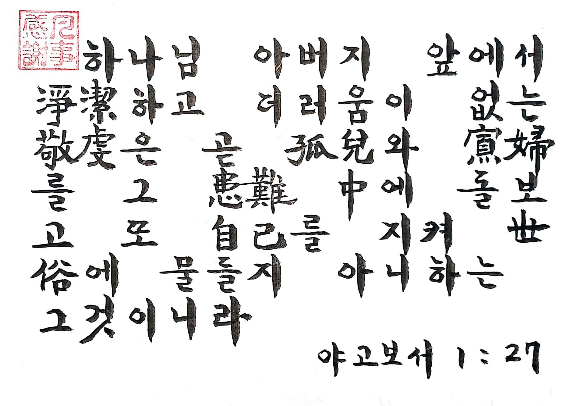 凡事感謝
하나님 아버지 앞에서
淨潔하고 더러움이 없는
敬虔은 곧 孤兒와 寡婦
를 그 患難 中에 돌보
고 또 自己를 지켜 世
俗에 물들지 아니하는
그것이니라
야고보서 1:27